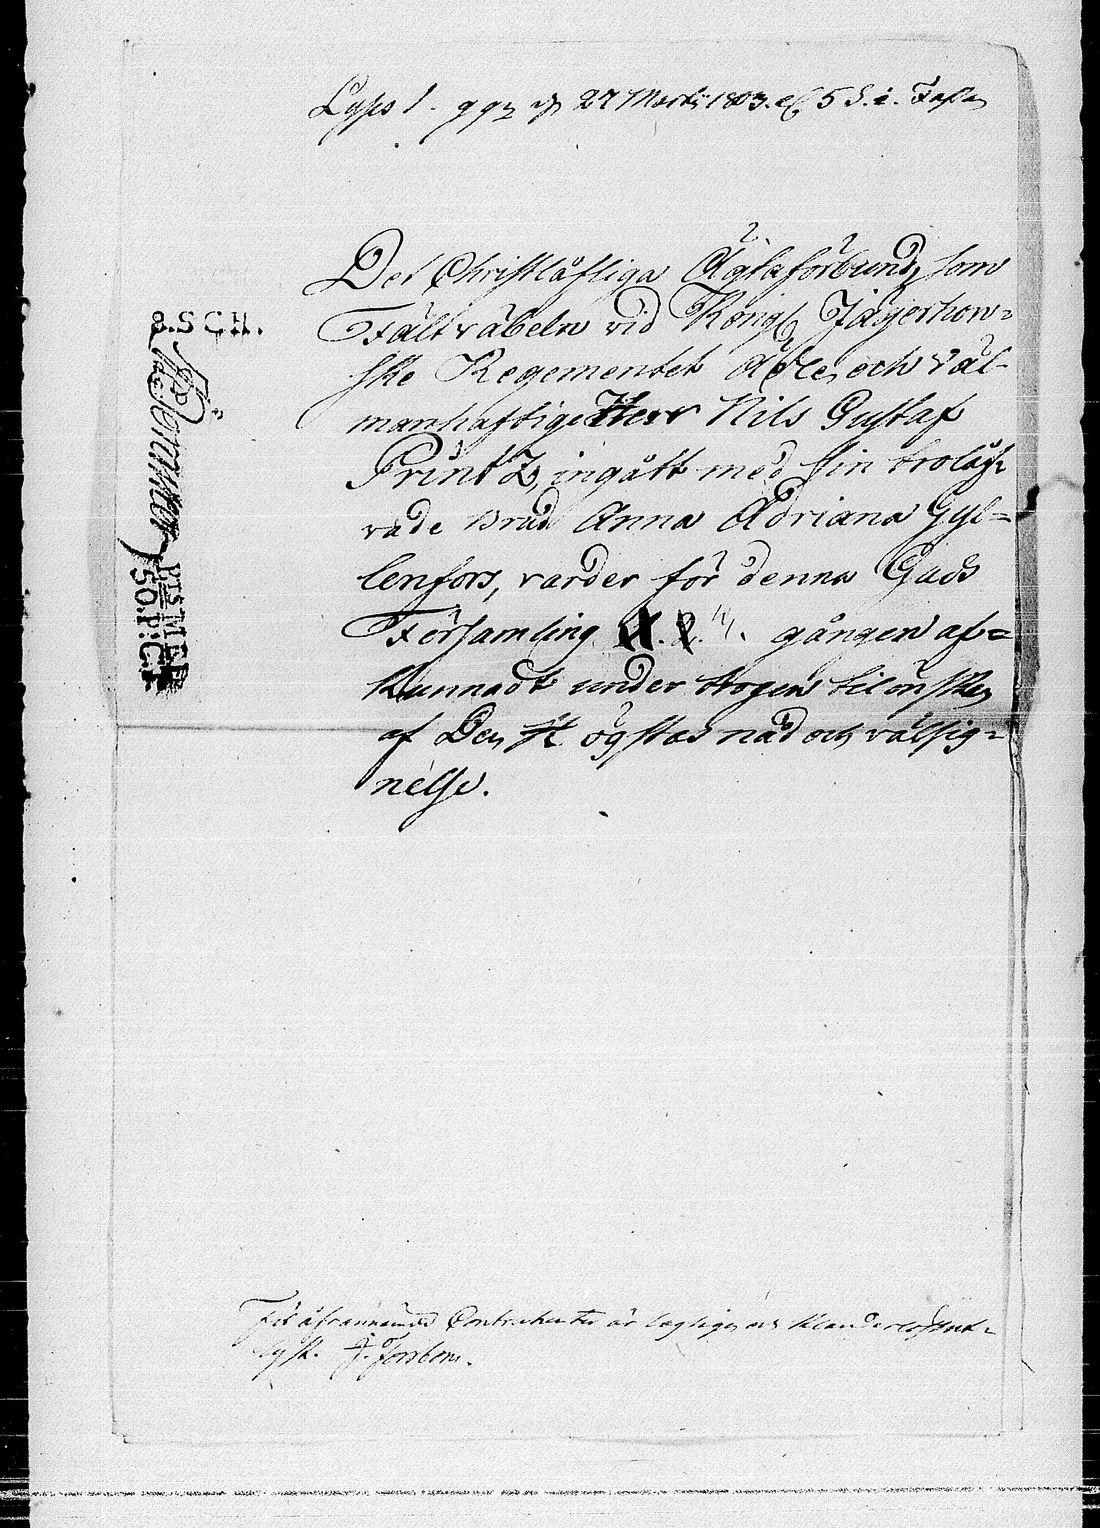 Lyss 1. ggn 27 Martii 1803. 5 S. i. Fasta
Det Christlåfliga Ägtaförbund, som
Fältväbeln vid Kongl Jägerhorn-
ska Regementet Ädle och Väl-
manhaftige Herr Nils Gustaf
Printz, ingått med sin trolåf-
vade Brud Anna Adriana Gyl-
lenfors, varder för denna Gads
Församling gången af-
kunnadt under trogen tilönskan
af Den Högstas nåd och välsig-
nelse.
8. SCH.
För åfvannämnde Contrahenter är lagligen och klanderlöst ut-
lyst. J. Forsbom.